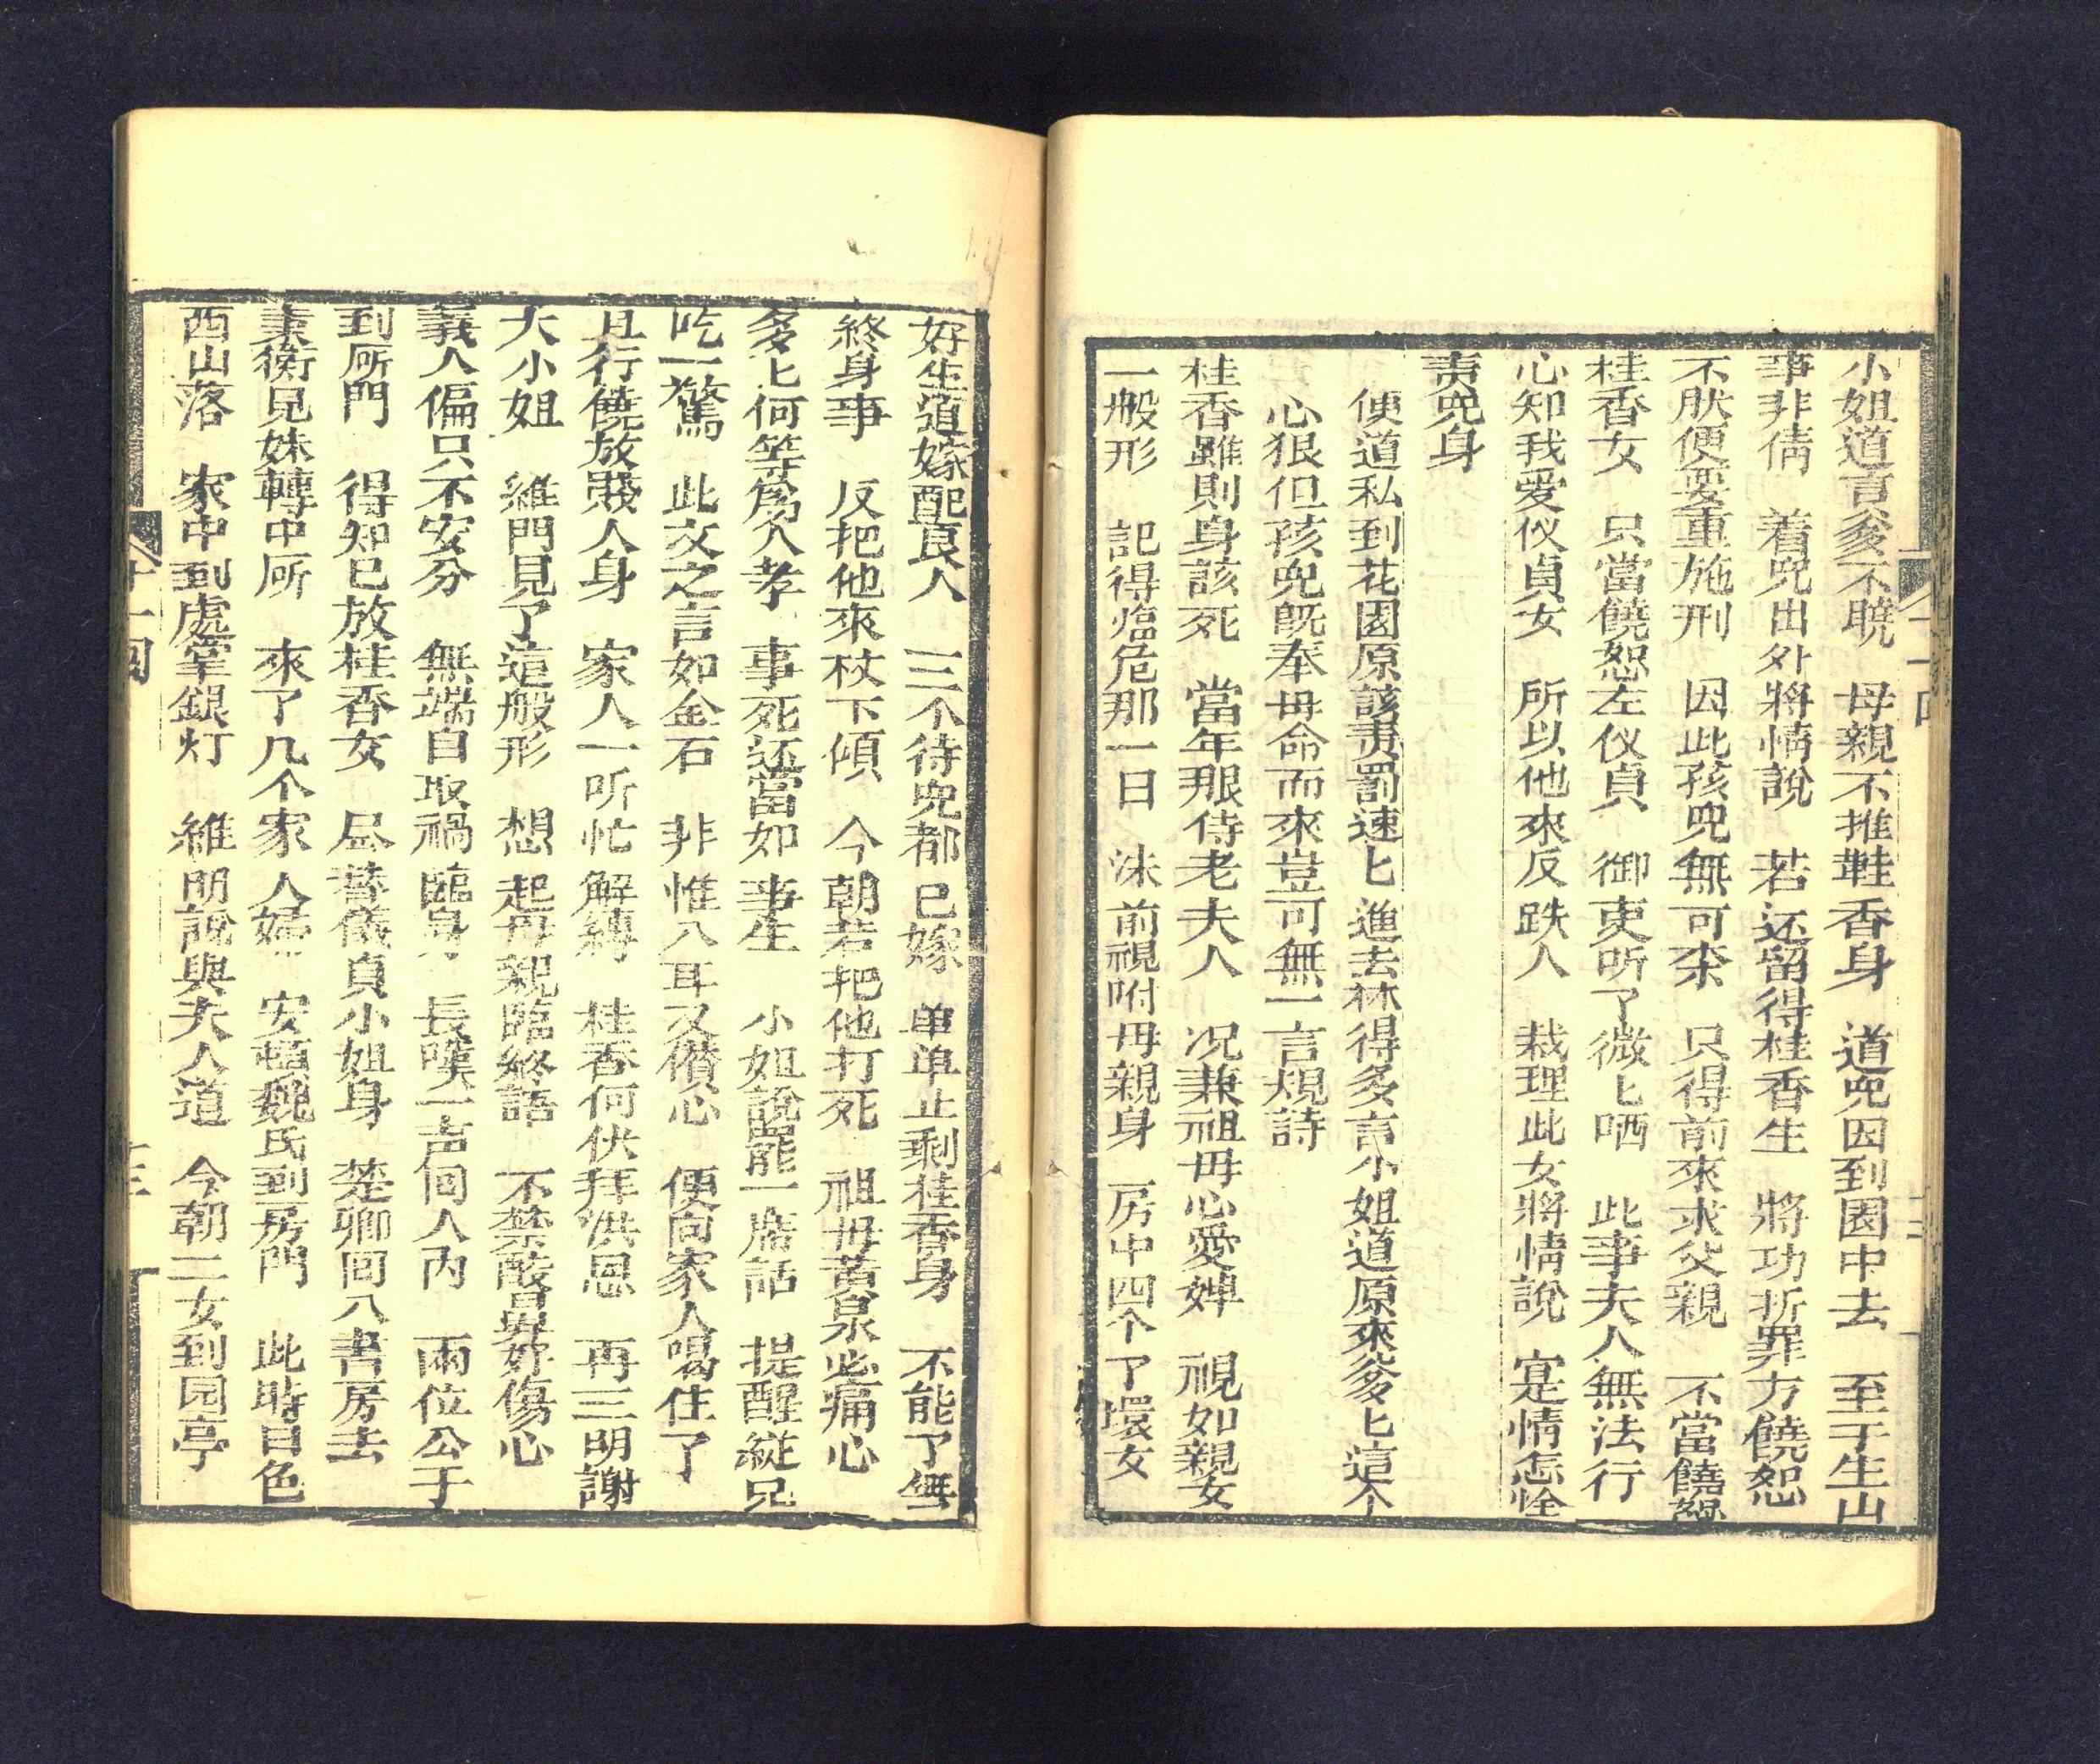 小姐道言爹不曉　母親不推鞋香身　道兕因到園中去　至于生山
事非倩　着兕出外將情說　若还留得桂香生　將功折罪方饒恕
不肰便要重施刑　因此孩兕無可柰　只得前來求父親　不當饒恕
桂香女　只當饒恕左仪貞　御吏听了微匕哂　此事夫人無法行
心知我愛仪貞女　所以他來反跌人　栽理此女將情說　寔情怎恠
責兕身
便道私到花園原該責罰速匕進去林得多言小姐道原來爹匕這个
心狠但孩兕旣奉母命而來豈可無一言規諍
桂香雖則身該死　當年服侍老夫人　况兼祖母心愛婢　視如親女
一般形　記得臨危那一日　床前視咐母親身　房中四个了環女
好生道嫁配良人　三个待兕都已嫁　单单止剩桂香身　不能了無
終身事　反把他來杖下傾　今朝若把他打死　祖毋黃泉必痛心
多匕何等爲人孝　事死还當如事生　小姐說罷一席話　提醒縱兄
吃一驚　此交之言如金石　非惟入耳又儆心　便向家人喝住了
且行饒放賤人身　家人一听忙解縛　桂香何伏拜洪恩　再三明謝
大小姐　維門見了這般形　想起母親臨終語　不禁酸鼻好傷心
義人偏只不安分　無端自取禍臨身　長嘆一声囘入內　兩位公于
到所門　得知已放桂香女　尽替儀貞小姐身　楚卿囘入書房去
秉衡見妹轉中所　來了几个家人婦　安頓魏氏到房門　此時日色
西山落　家中到處掌銀灯　維明說與夫人道　今朝二女到园亭
十一回